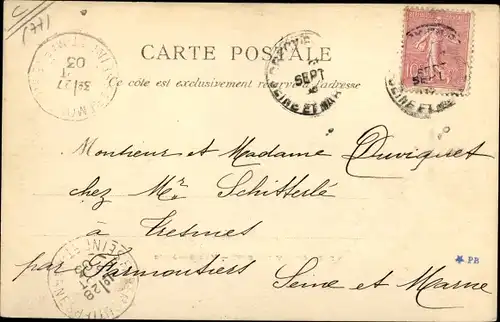 (77)
CARTE POSTALE
Ce côté est exclusivement réservé à l'adresse
SEPT
SEINE ET MAR
Monsieur et Madame Duviquet
chez Mr. Schitterlé
à Tresmes
par Farmoutiers Seine et Marne
PB